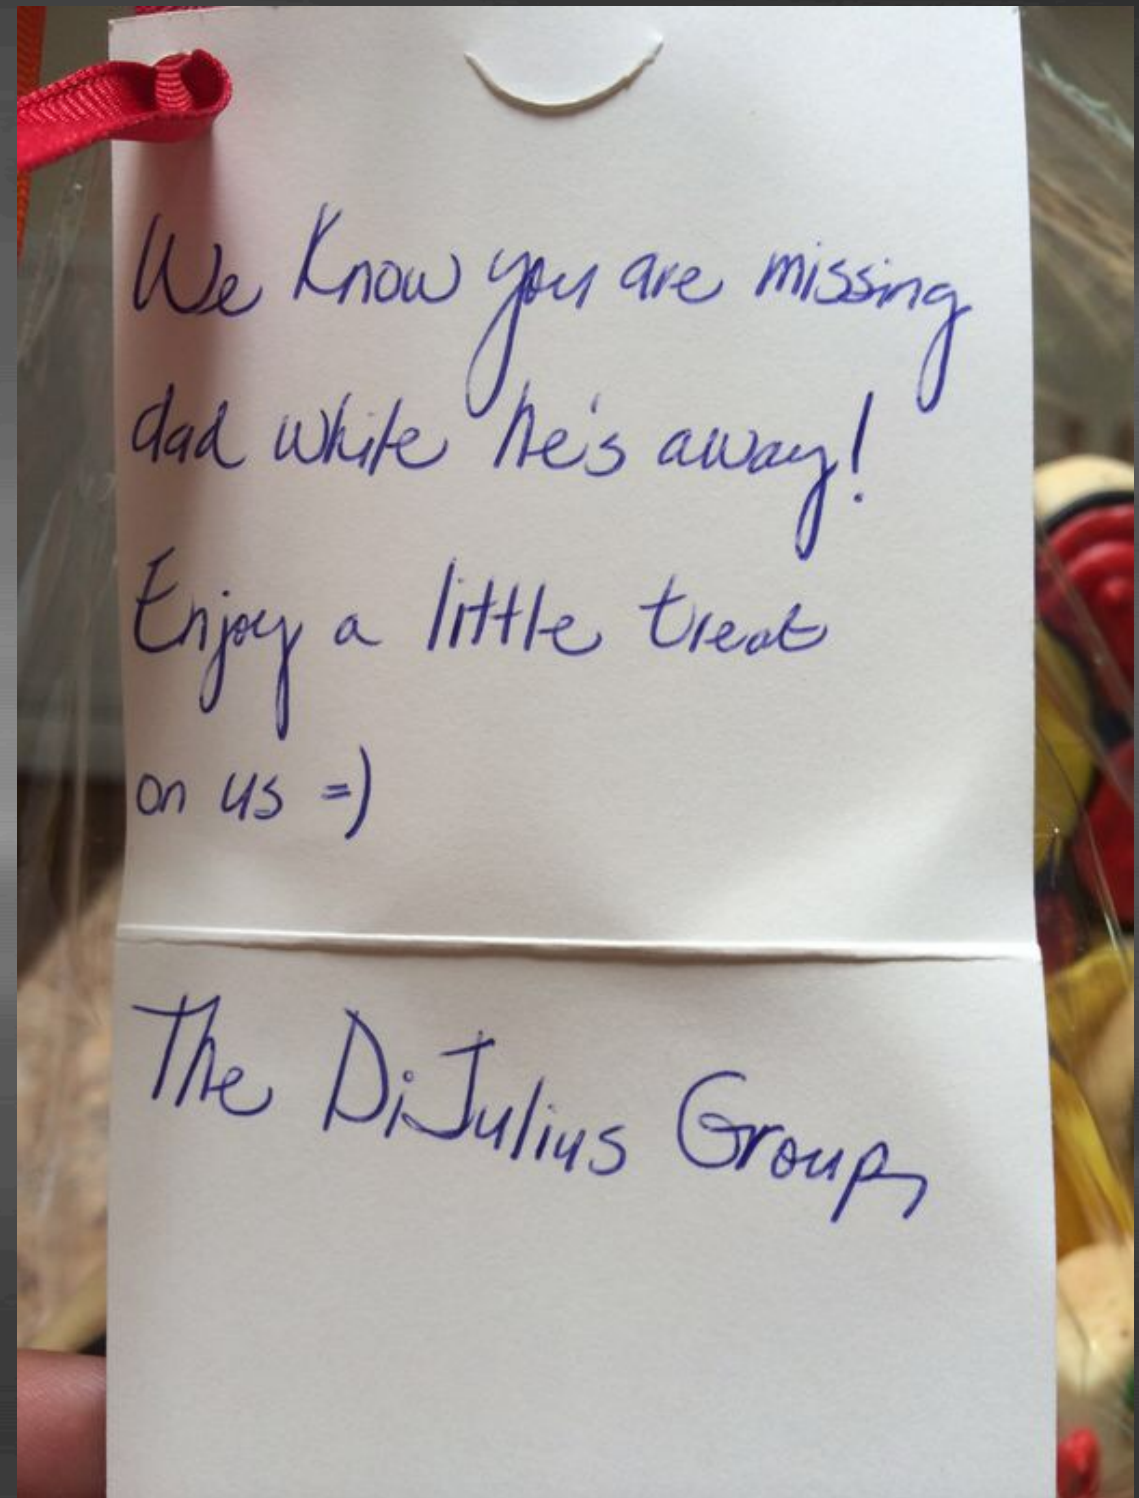 We Know you are missing
dad while he's away!
Enjoy a little treat
on us =)
The DiJulius Group